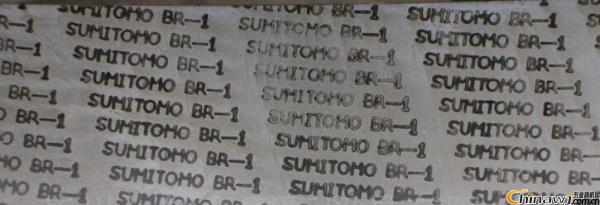 BR-1 SUMITOMO BR-1 SUMITOMO BR-1 SUMITOMO BR-1
BR-1 SUMITOMO BR-1 SUMITOMO BR-1 SUMITOMO BR-1
BR-1 SUMITOMO BR-1 SUMITOMO BR-1 SUMITOMO BR-1
BR-1 SUMITOMO BR-1 SUMITOMO BR-1 SUMITOMO BR-1
BR-1 SUMITOMO BR-1 SUMITOMO BR-1 SUMITOMO BR-1
O BR-1 SUMITOMO BR-1 SUMITOMO BR-1 SUMITOMO BR-1
MO BR-1 SUMITOMO BR-1 SUMITOMO BR-1 SUMITOMO BR-1
MO BR-1 SUMITOMO BR-1 SUMITOMO BR-1 SUMITOMO BR-1
OMO BR-1 SUMITOMO BR-1 SUMITOMO BR-1 SUM
Chinawj
.com.cn